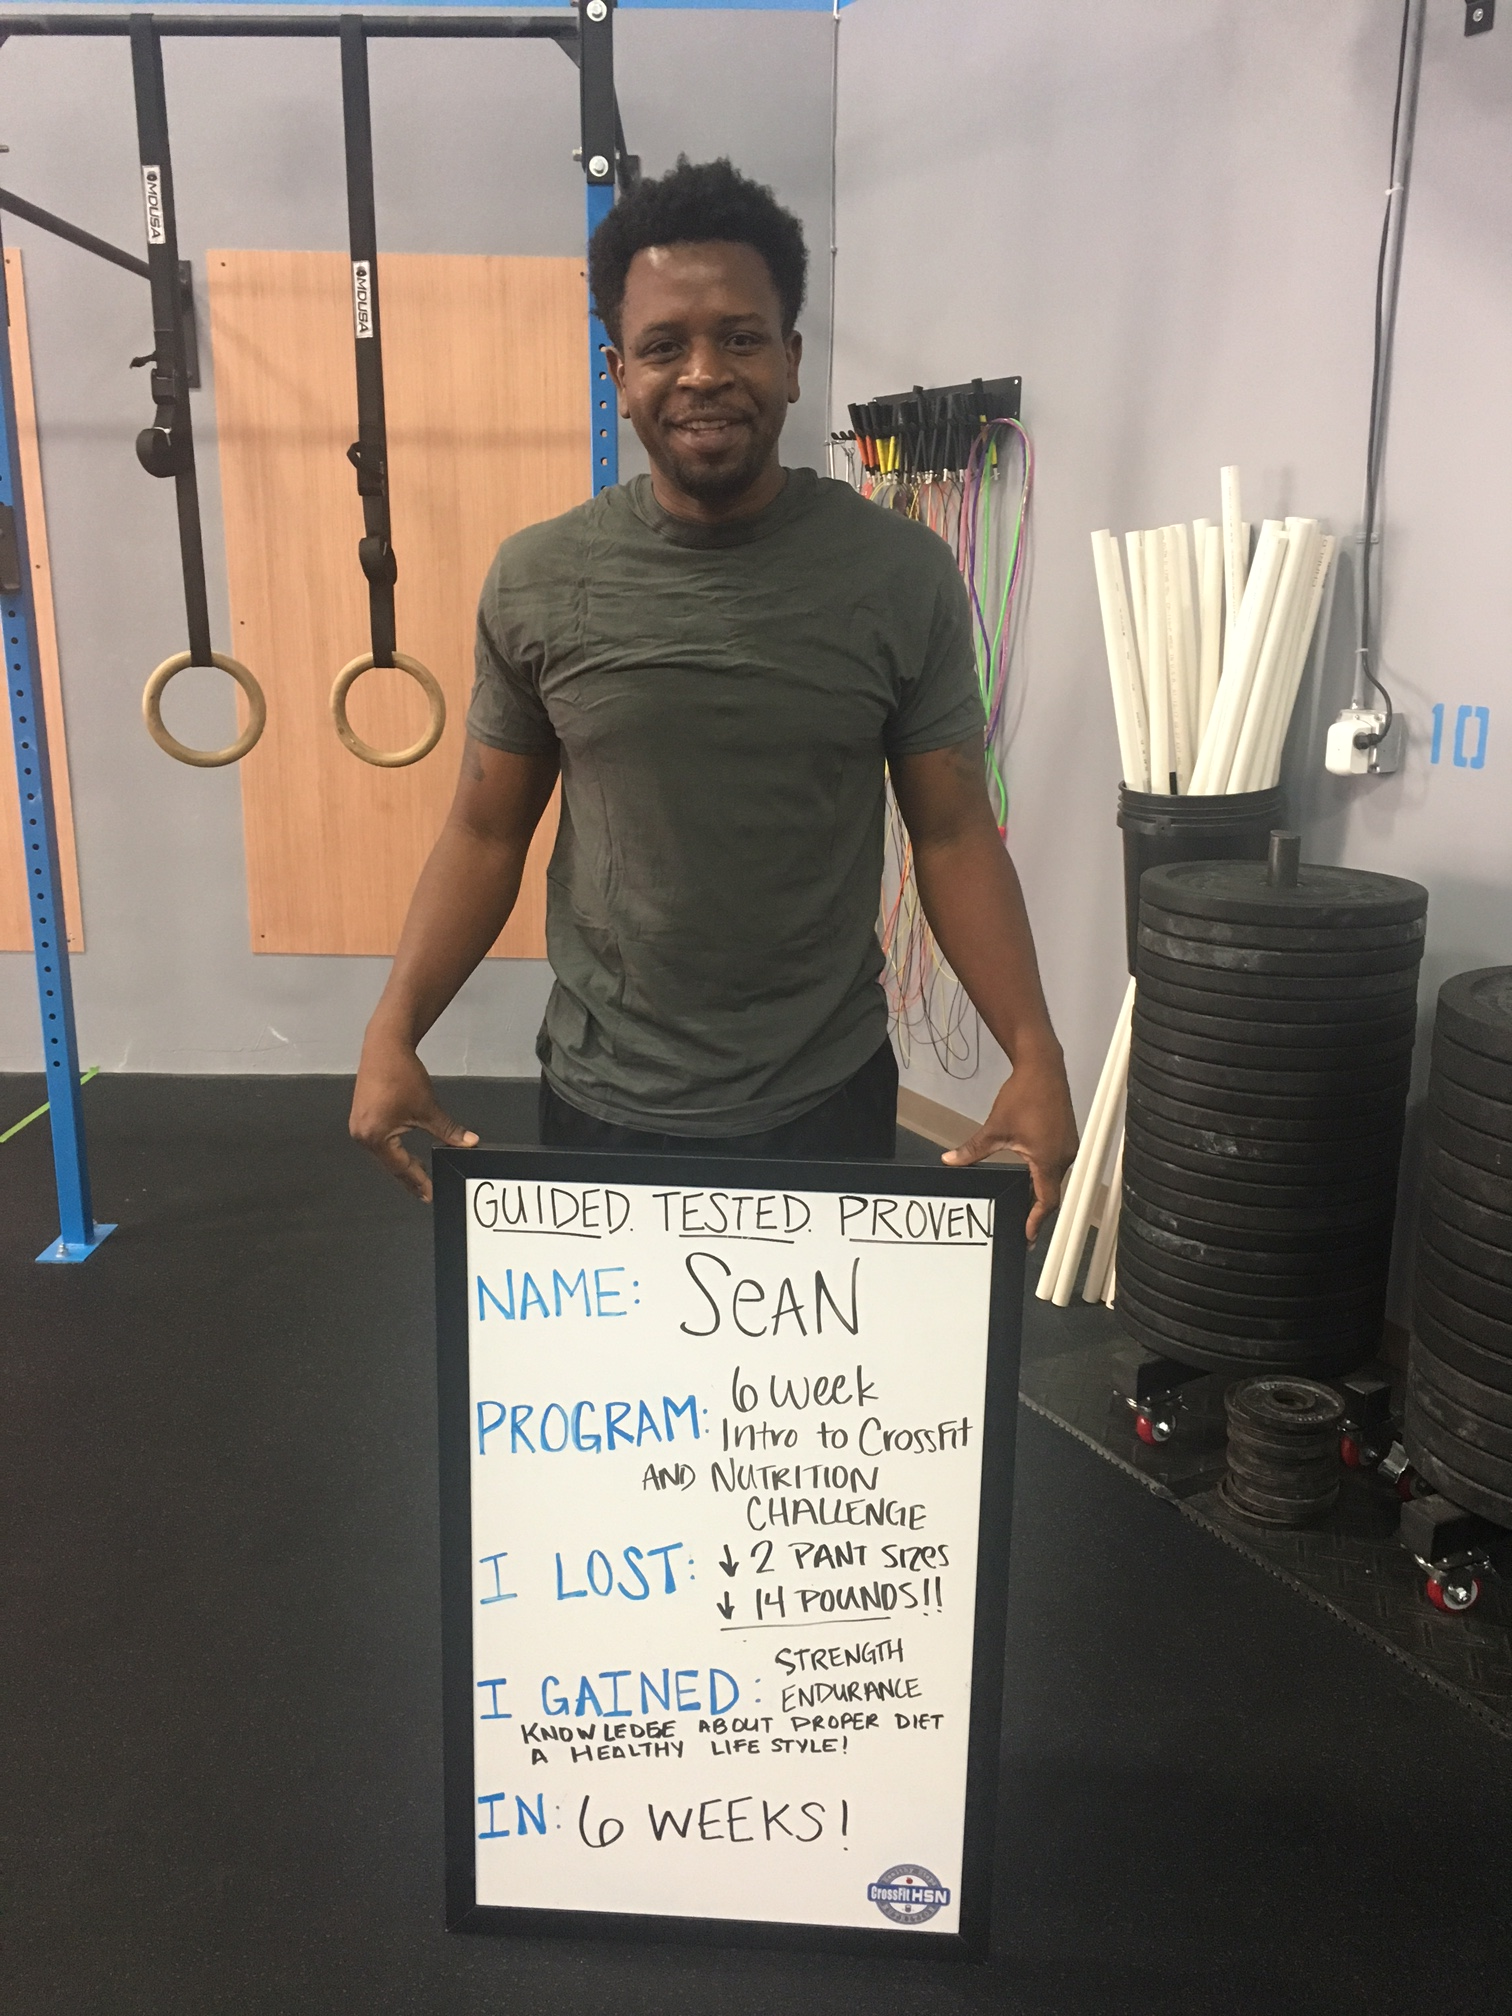 MDUSA
MDUSA
10
GUIDED. TESTED. PROVEN
NAME: SeAN
PROGRAM: 6 Week
Intro to CrossFit
AND NUTRITION
CHALLENGE
I LOST: ↓ 2 PANT SIzes
↓ 14 POUNDS!!
I GAINED: STRENGTH
ENDURANCE
KNOWLEDGE ABOUT PROPER DIET
A HEALTHY LIFE STYLE!
IN: 6 WEEKS!
CrossFit HSN